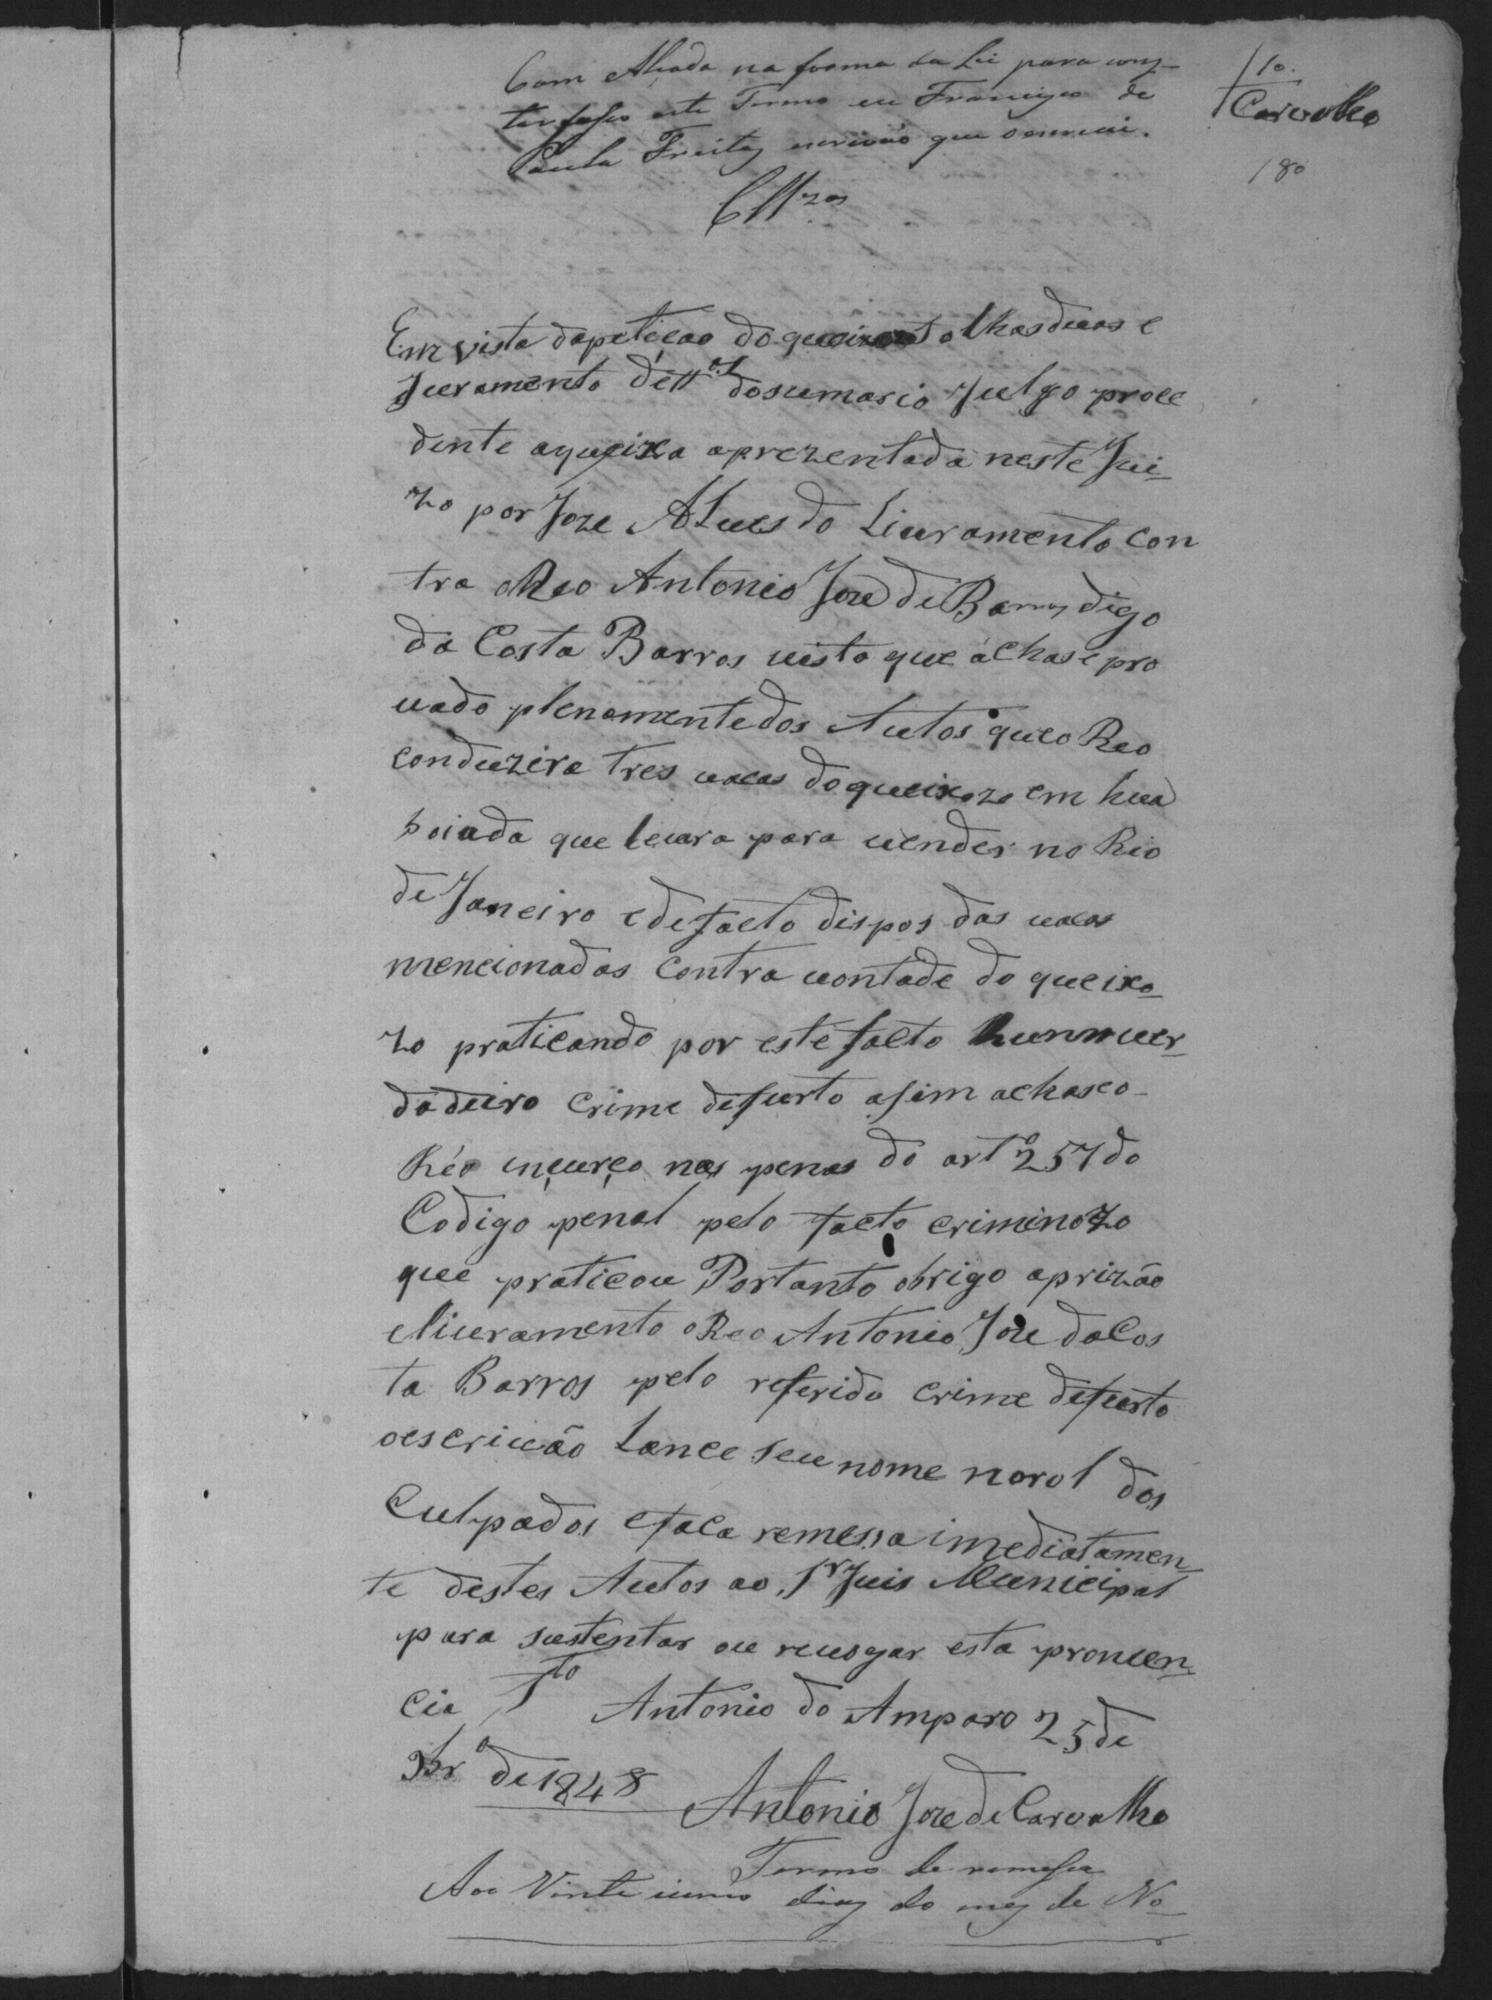 Com Alçada na forma da Lei para cons-
tar faço este Termo eu Francisco de
Paula Freitas escrivão que o escrevi.
Cllzos
10.
Carvalho
180
Em vista dapeticao do queixozo olhasduas e
Juramento de ttas dosumario Julgo proce
dente aqueixa aprezentada neste Jui-
zo por Joze Alues do Liuramento con
tra oReo Antonio Joze de Barros digo
da Costa Barros uisto que áchase pro
uado plenamentedos Autos queo Reo
conduzira tres uacas doqueixozo em hua
boiada que leuara para uender no Rio
de Janeiro edefacto dispos das uacas
mencionadas contra uontade do queixo-
zo praticando por este facto hum uer-
dadeiro crime defurto asim achaseo-
Réo incurço nas penas do arto 257 do
Codigo penal pelo facto criminozo
que praticou Portanto obrigo aprizão
eliuramento oReo Antonio Joze daCos
ta Barros pelo referido crime defurto
oescriuão Lance seu nome norol dos
Culpados efaca remessa imediatamen-
te destes Autos ao Sr Juis Municipal
para sustentar ou reuogar esta pronun-
cia Sto Antonio do Amparo 25 de
9bro de 1848
Antonio Joze de Carvalho
Termo de remessa
Aos Vinte e cinco dias do mes de No-